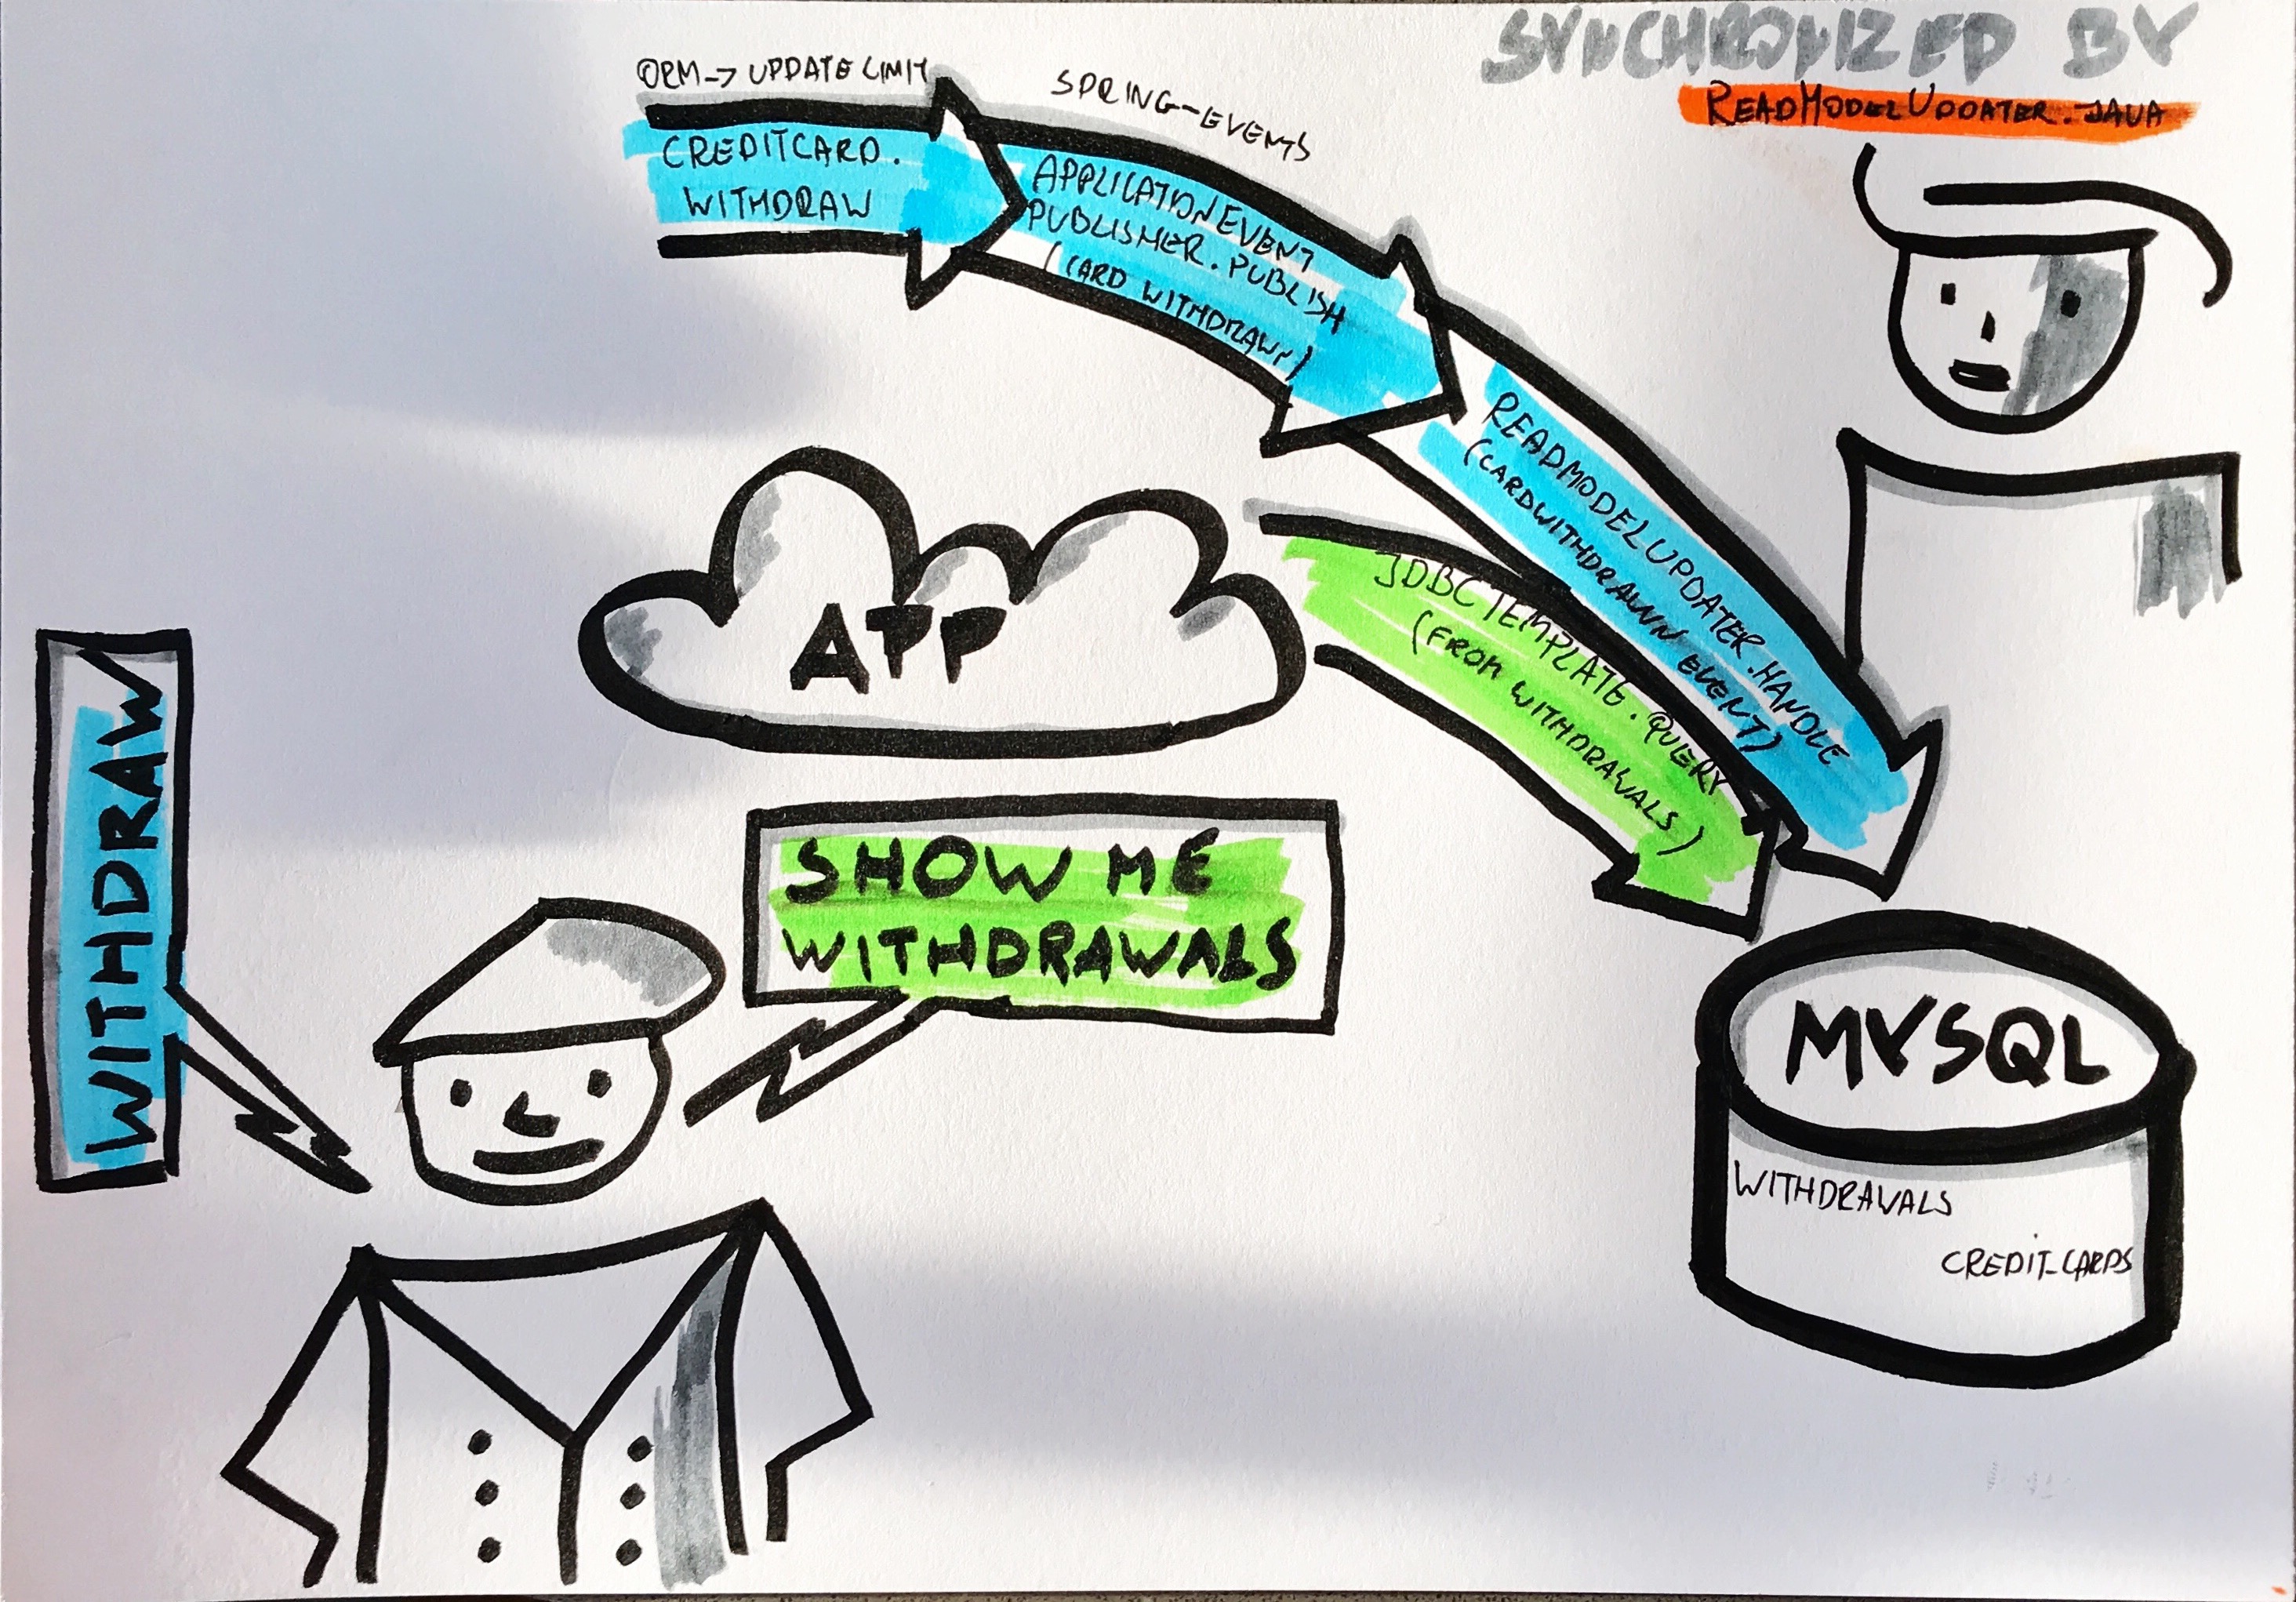 SYNCHRONIZED BY
READMODELUPDATER.JAVA
ORM -> UPDATE LIMIT
SPRING-EVENTS
CREDITCARD.
WITHDRAW
APPLICATIONEVENT
PUBLISHER.PUBLISH
(CARD WITHDRAWN)
READMODELUPDATER.HANDLE
(CARDWITHDRAWNN EVENT)
JDBCTEMPLATE.QUERY
(FROM WITHDRAWALS)
APP
WITHDRAW
SHOW ME
WITHDRAWALS
MYSQL
WITHDRAWALS
CREDIT_CARDS